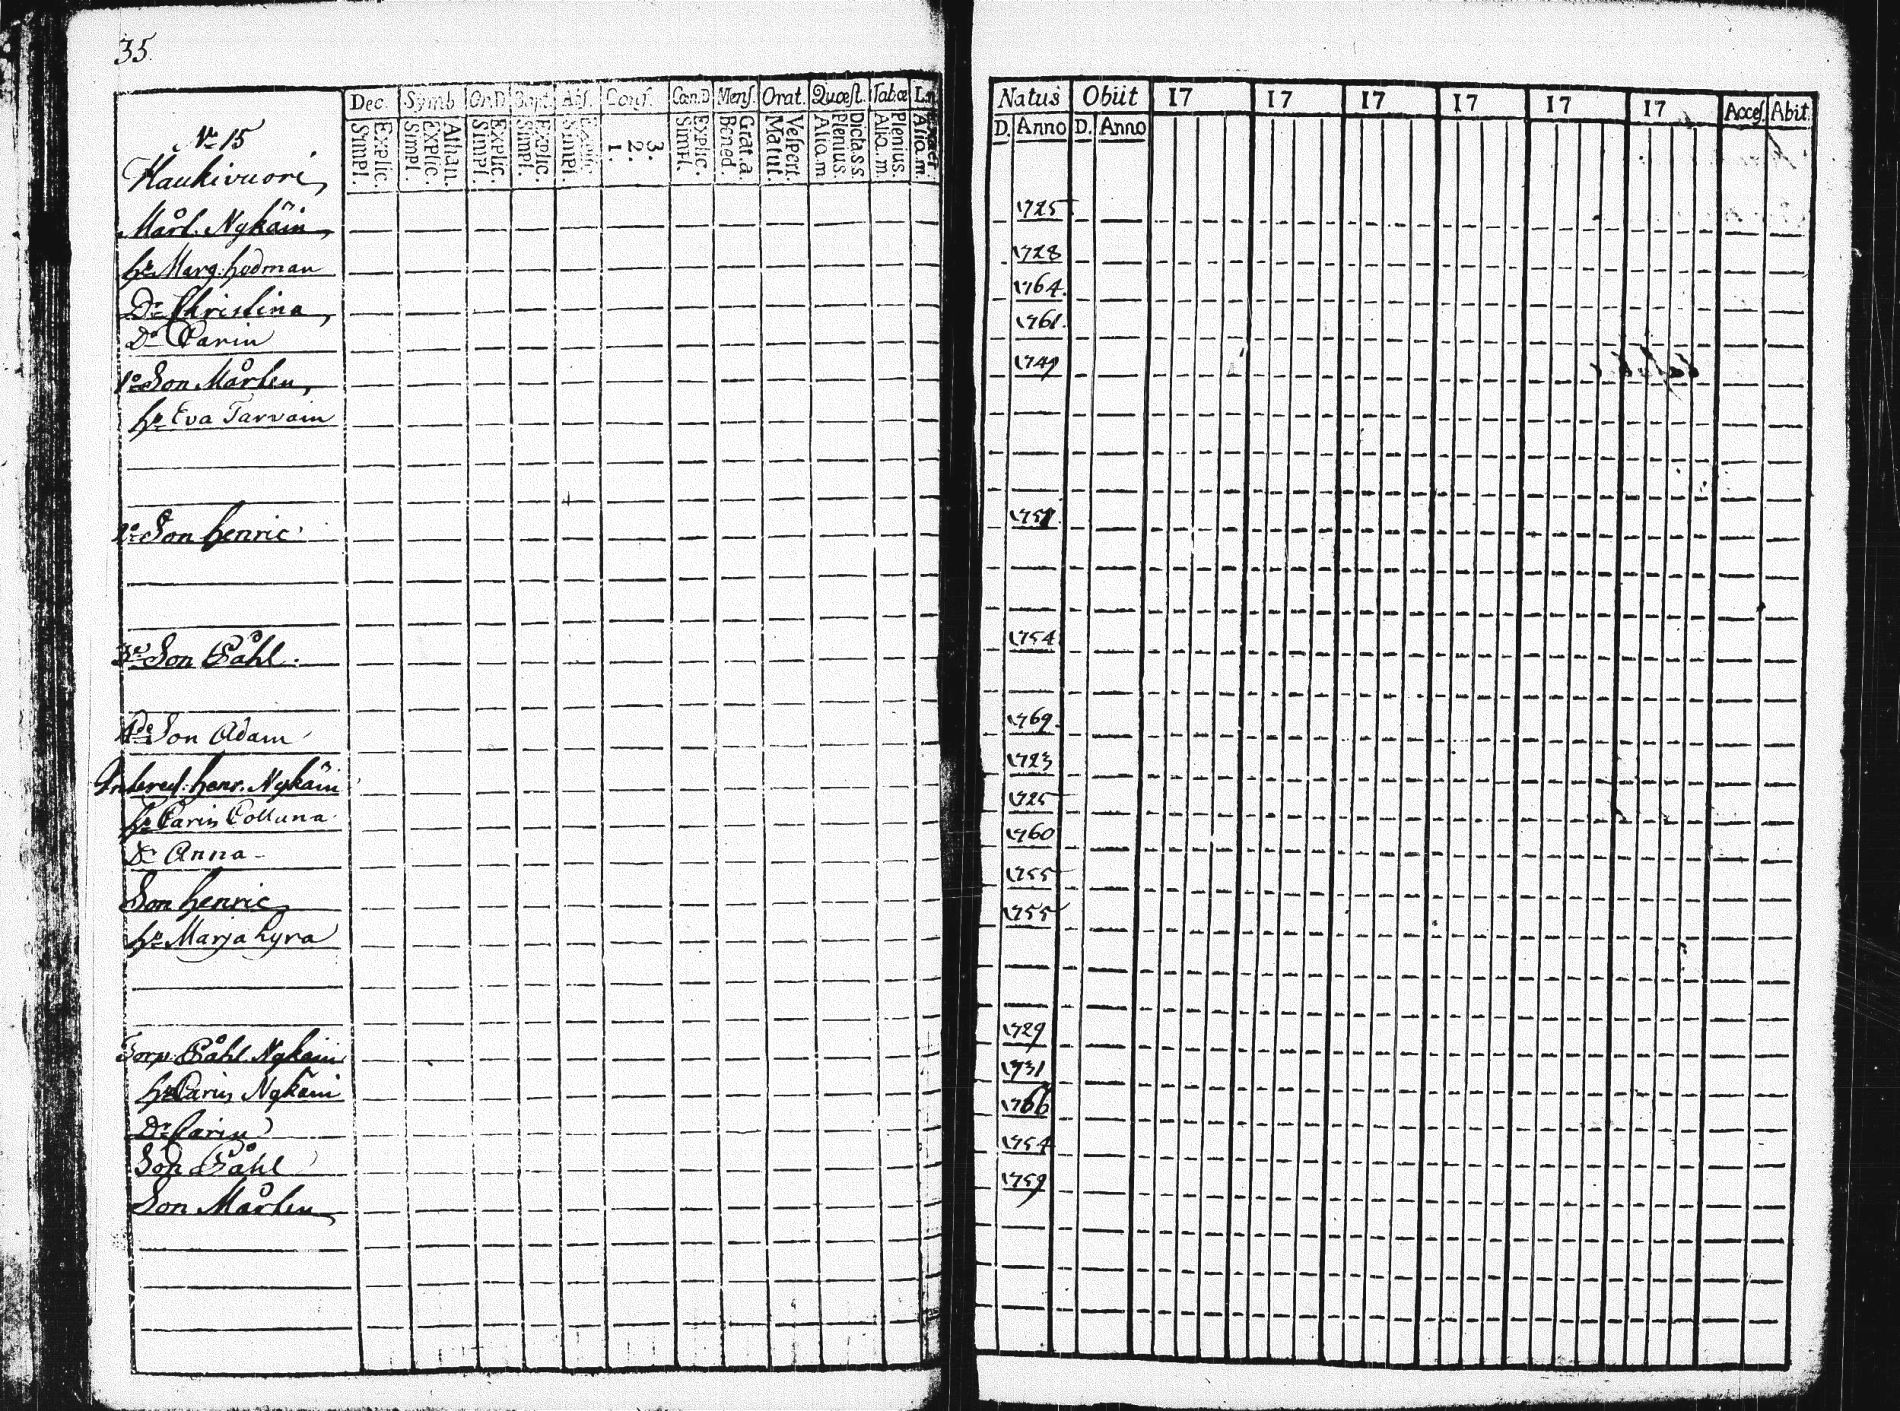 35.
Dec. Symb. Or.D. Bapt. Abs. Conf. Cœn.D. Mens. Orat. Quæst. Tab.æ
Natus Obiit 17 17 17 17 17 17 Acces. Abit.
Simpl. Explic. Simpl. Explic. Athan. Simpl. Explic. Simpl. Explic. Simpl. Explic. 1. 2. 3. Simpl. Explic. Bened. Grat.a Matut. Vespert. Alio.m Plenius Dicta.s.s Alio.m. Plenius. Alio.m.
D. Anno D. Anno
No 15
Haukivuori,
Mårt. Nykäin, 1725
hu Marg. hodman 1728
Dr Christina, 1764.
Dr Carin 1761.
1o Son Mårten, 1749
hu Eva Tarvain
2o Son henric 1751.
3e Son Påhl. 1754
4de Son Adam 1769.
Inheres. henr. Nykäin 1723
hu Carin Polluna 1725
Dr Anna 1760
Son henric 1755
hu Marja Lyra 1755
Torp. Påhl Nykäin 1729
hu Carin Nykäin 1731
Dr Carin 1766
Son Påhl 1754
Son Mårten, 1759